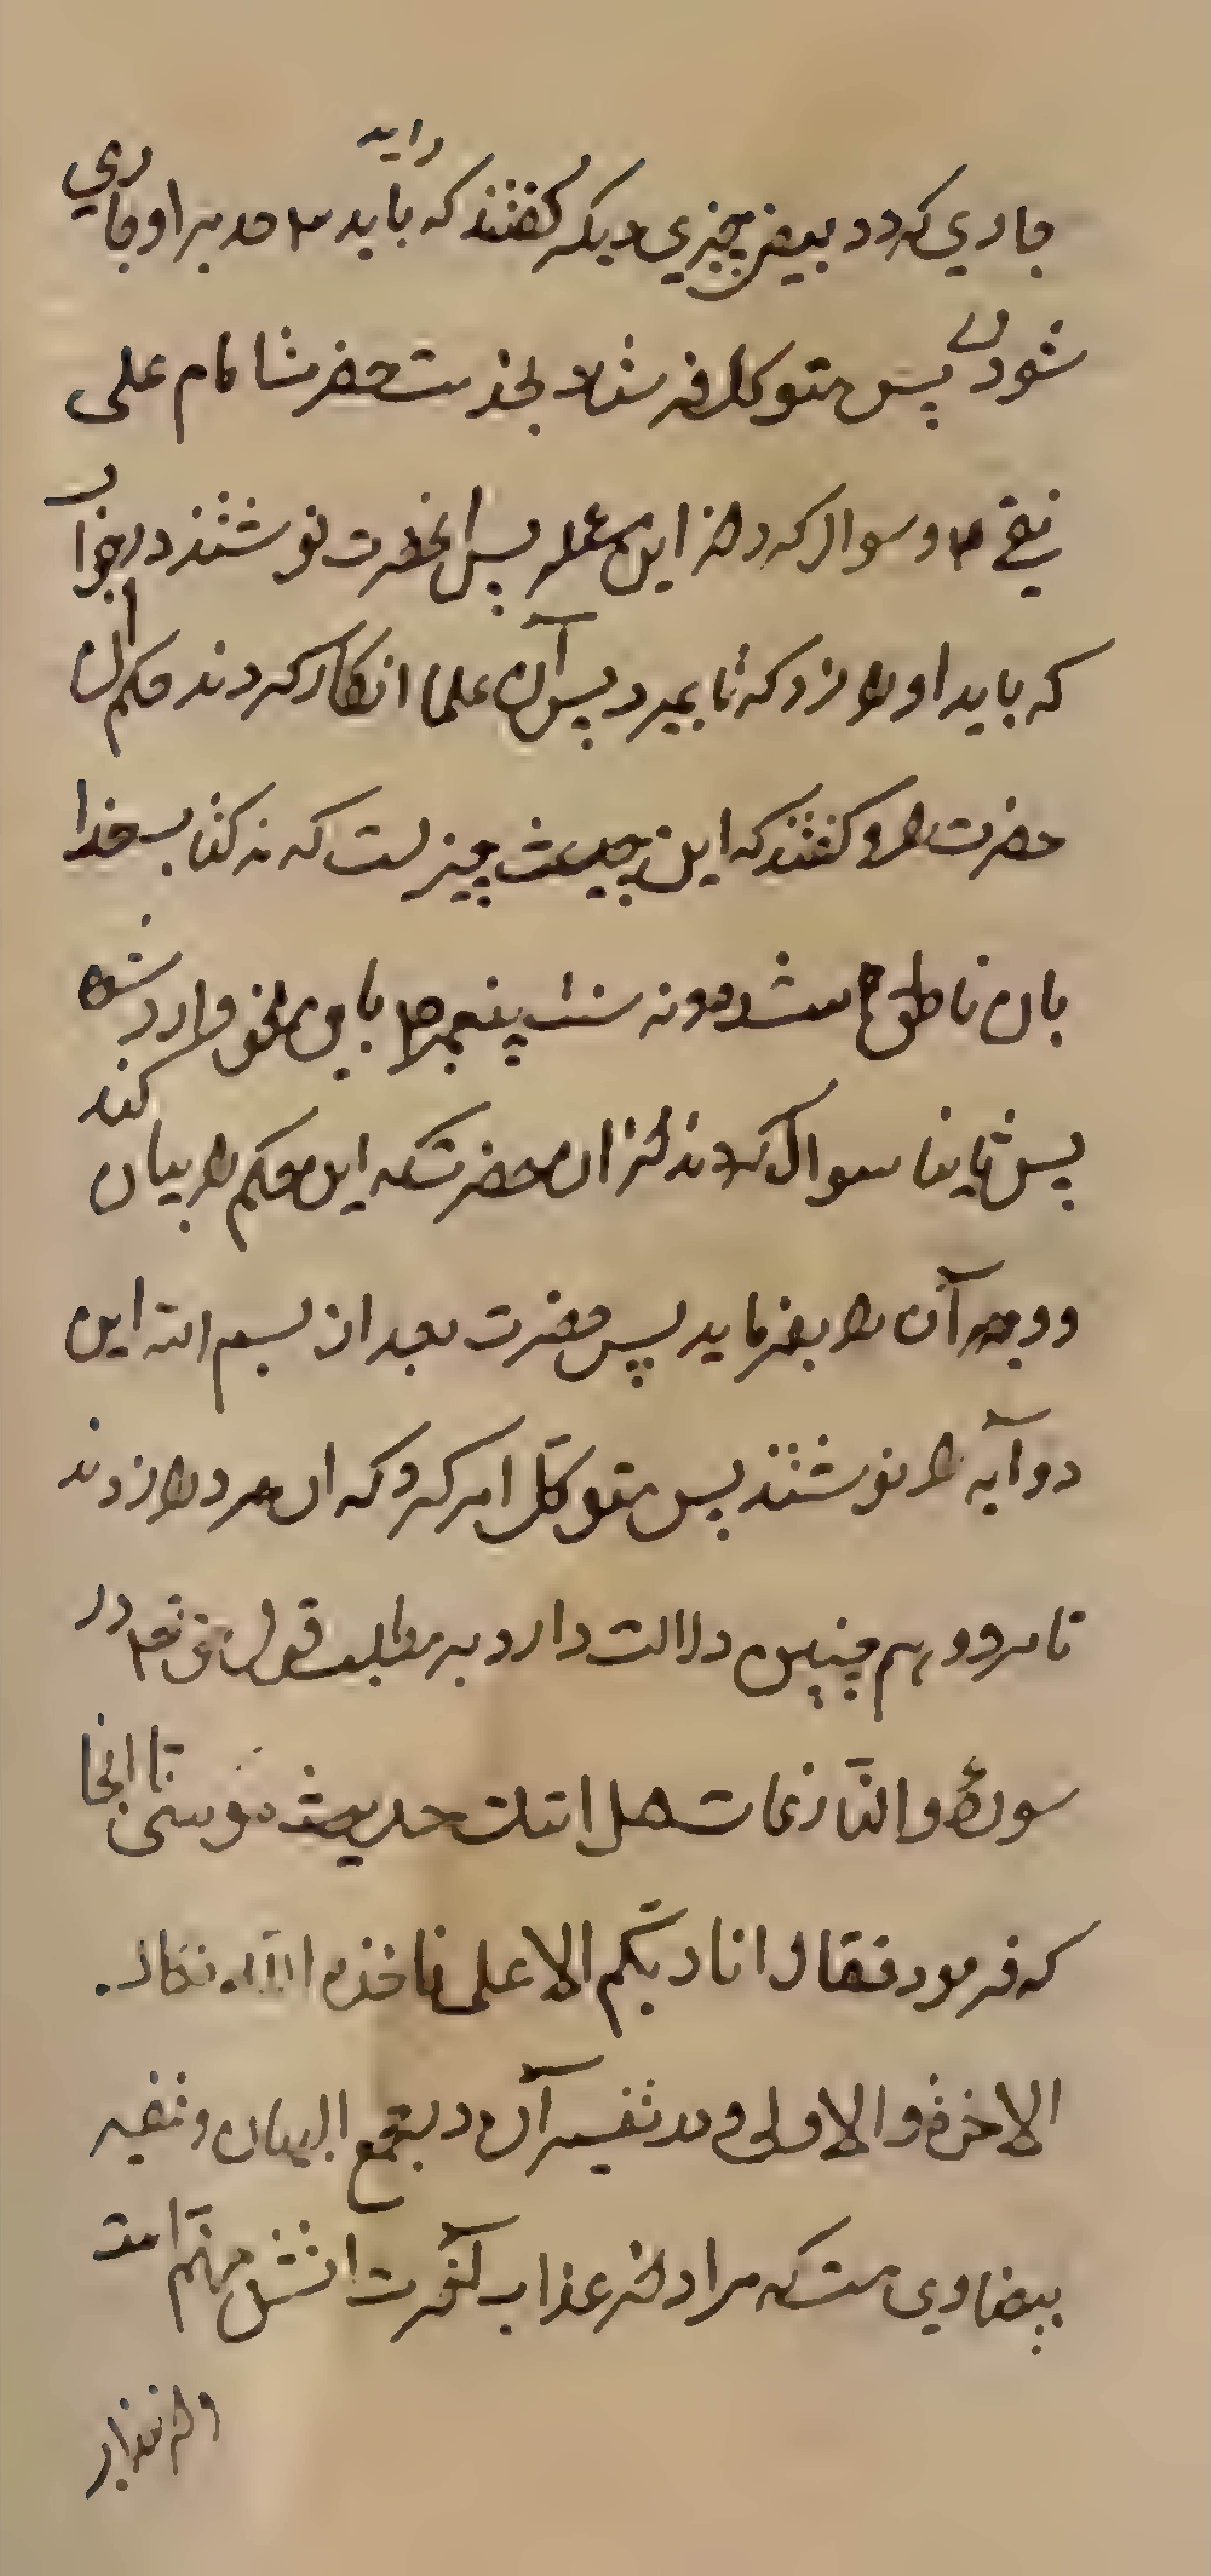 جاري كه در بعض چيزي ديكر كفتند كه بايد سه حد بر او جاري
شود پس متوكل فرستاد بخدمت حضرت امام على
نقي ۴ و سوال كرد از اين مسئله پس انحضرت نوشتند در جواب
كه بايد او را زد كه تا بميرد پس آن علما انكار كردند حكم ان
حضرت را و كفتند كه اين چيزيست كه نه كتاب خدا
بان ناطق شده و نه سنت پيغمبر باين نحو وارد شده
پس ثانيا سوال كردند از ان حضرت كه اين حكم را بيان كند
و وجه آن را بفرمايد پس حضرت بعد از بسم الله اين
دو آيه را نوشتند پس متوكّل امر كرد كه ان مرد را زدند
تا مرد و هم چنين دلالت دارد بر مطلب قول حق تعالى در
سورهٔ والنّازعات هل اتيك حديث موسى تا انجا
كه فرمود فقال انا ربّكم الاعلى فاخذه اللّه نكال
الاخرة والاولى و در تفسير آن در مجمع البيان و تفسير
بيضاوي است كه مراد از عذاب آخرت اتش جهنّم است
و از عذاب